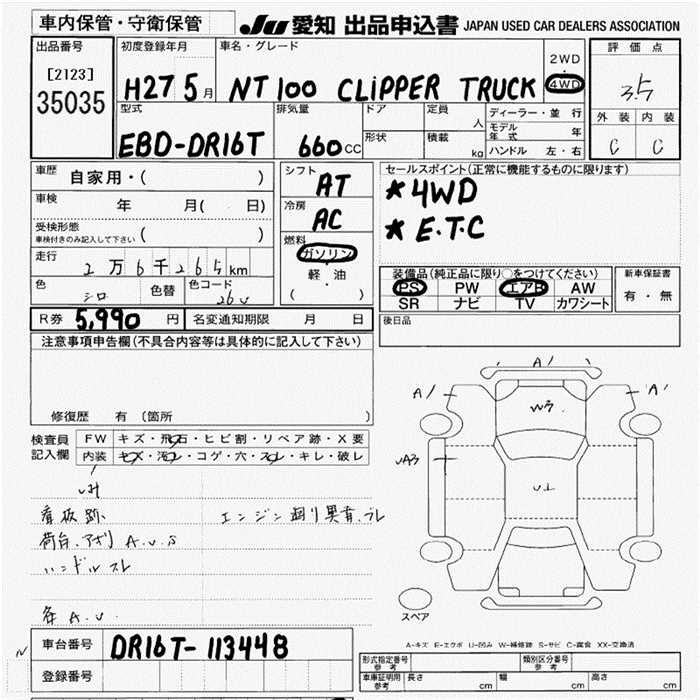 車内保管・守衛保管
JU 愛知 出品申込書 JAPAN USED CAR DEALERS ASSOCIATION
出品番号
[2123]
35035
初度登録年月
H27 5月
車名・グレード
NT100 CLIPPER TRUCK
2WD
・
4WD
評価点
3.5
外装 内装
C C
型式
EBD-DR16T
排気量
660cc
ドア
形状
定員
人
積載
kg
ディーラー・並行
モデル年式 年
ハンドル 左・右
車歴 自家用・( )
車検 年 月( 日)
受検形態
車検付きのみ記入して下さい ( )
走行 2万6千265km
色 シロ 色替 色コード 26U
シフト
AT
冷房
AC
燃料
ガソリン
軽・油
( )
セールスポイント(正常に機能するものに限ります)
★4WD
★E.T.C
装備品(純正品に限り○をつけてください)
PS PW エアB AW
SR ナビ TV カワシート
新車保証書
有・無
R券 5,990円 名変通知期限 月 日
後日品
注意事項申告欄(不具合内容等は具体的に記入して下さい)
修復歴 有(箇所 )
検査員
記入欄
FW キズ・飛石・ヒビ割・リペア跡・X要
内装 キズ・汚レ・コゲ・穴・スレ・キレ・破レ
看板跡 エンジン廻り異音.ブレ
荷台.アオリ A.U.S
ハンドルスレ
各 A.U.
A1
A1
A1
W3
UA3
U1
スペア
A-キズ E-エクボ U-凹み W-補修跡 S-サビ C-腐食 XX-交換済
車台番号 DR16T-113448
登録番号
形式指定番号
参考
類別区分番号
参考
車庫証明用
参考
長さ cm 幅 cm 高さ cm